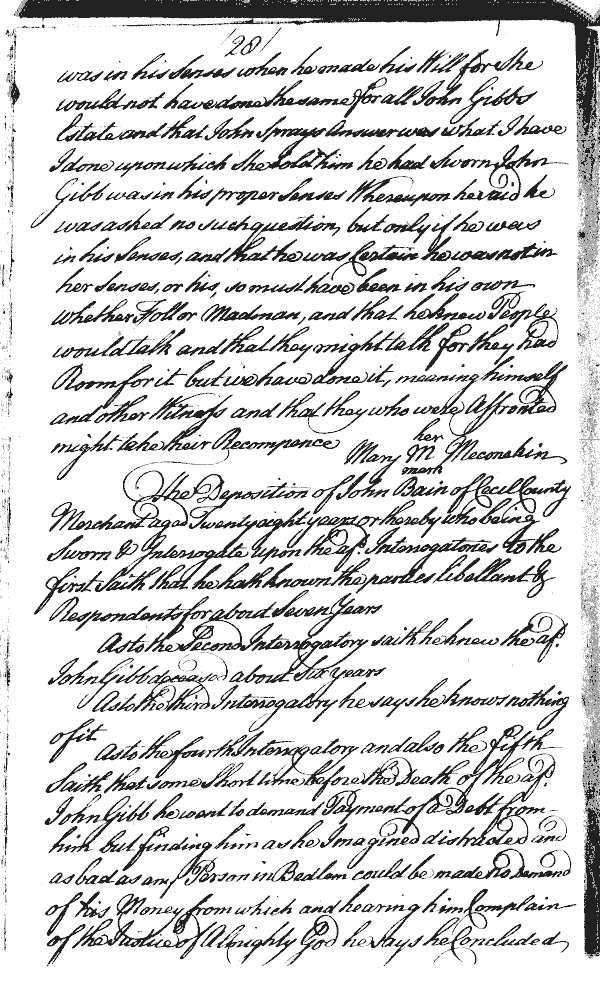 /28/
was in his Senses when he made his Will for She
would not have done the same for all John Gibbs
Estate and that John Sprays Answer was what I have
I done upon which She told him he had Sworn John
Gibb was in his proper Senses Whereupon he said he
was asked no such question, but only if he was
in his Senses, and that he was Certain he was not in
her Senses, or his, so must have been in his own
whether Foll or Madman, and that he knew People
would talk and that they might talk for they had
Room for it but we have done it, meaning himself
and other Witness and that they who were Affronted
might take their Recompence
her
Mary M Meconekin
mark
The Deposition of John Bain of Cecil County
Merchant aged Twenty eight years or thereby who being
Sworn & Interrogate upon the afs. Interrogatories to the
first Saith that he hath known the parties libellant &
Respondents for about Seven Years
As to the Second Interrogatory saith he knew the afs.
John Gibb deceased about Six years
As to the third Interrogatory he says he knows nothing
of it
As to the fourth Interrogatory and also the fifth
Saith that some Short time before the Death of the afs.
John Gibb he went to demand Payment of a Debt from
him but finding him as he Imagined distracted and
as bad as any Person in Bedlem could be made no Demand
of his Money from which and hearing him Complain
of the Justice of Almighty God he says he Concluded